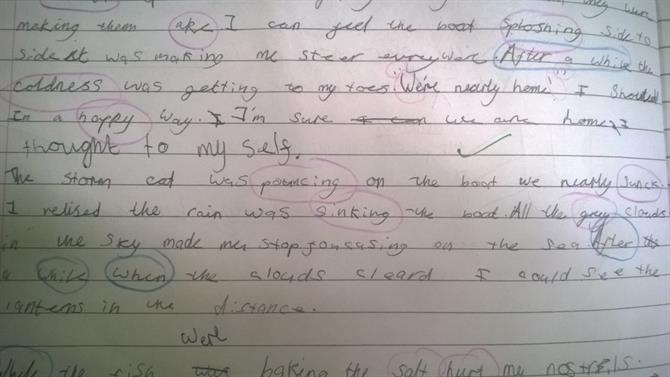 they were
making them ake I can feel the boat splashing side to
side it was making me steer everywere. After a while the
coldness was getting to my toes. "We're nearly home" I shouted
In a happy way. I'm sure we are home I
thought to my self.
The storm cat was pouncing on the boat we nearly sunck
I relised the rain was sinking the boat. All the grey clouds
in the sky made me stop foucasing on the sea After
a while when the clouds cleard I could see the
lanterns in the distance.
were
While the fish baking the salt hurt my nostrils.